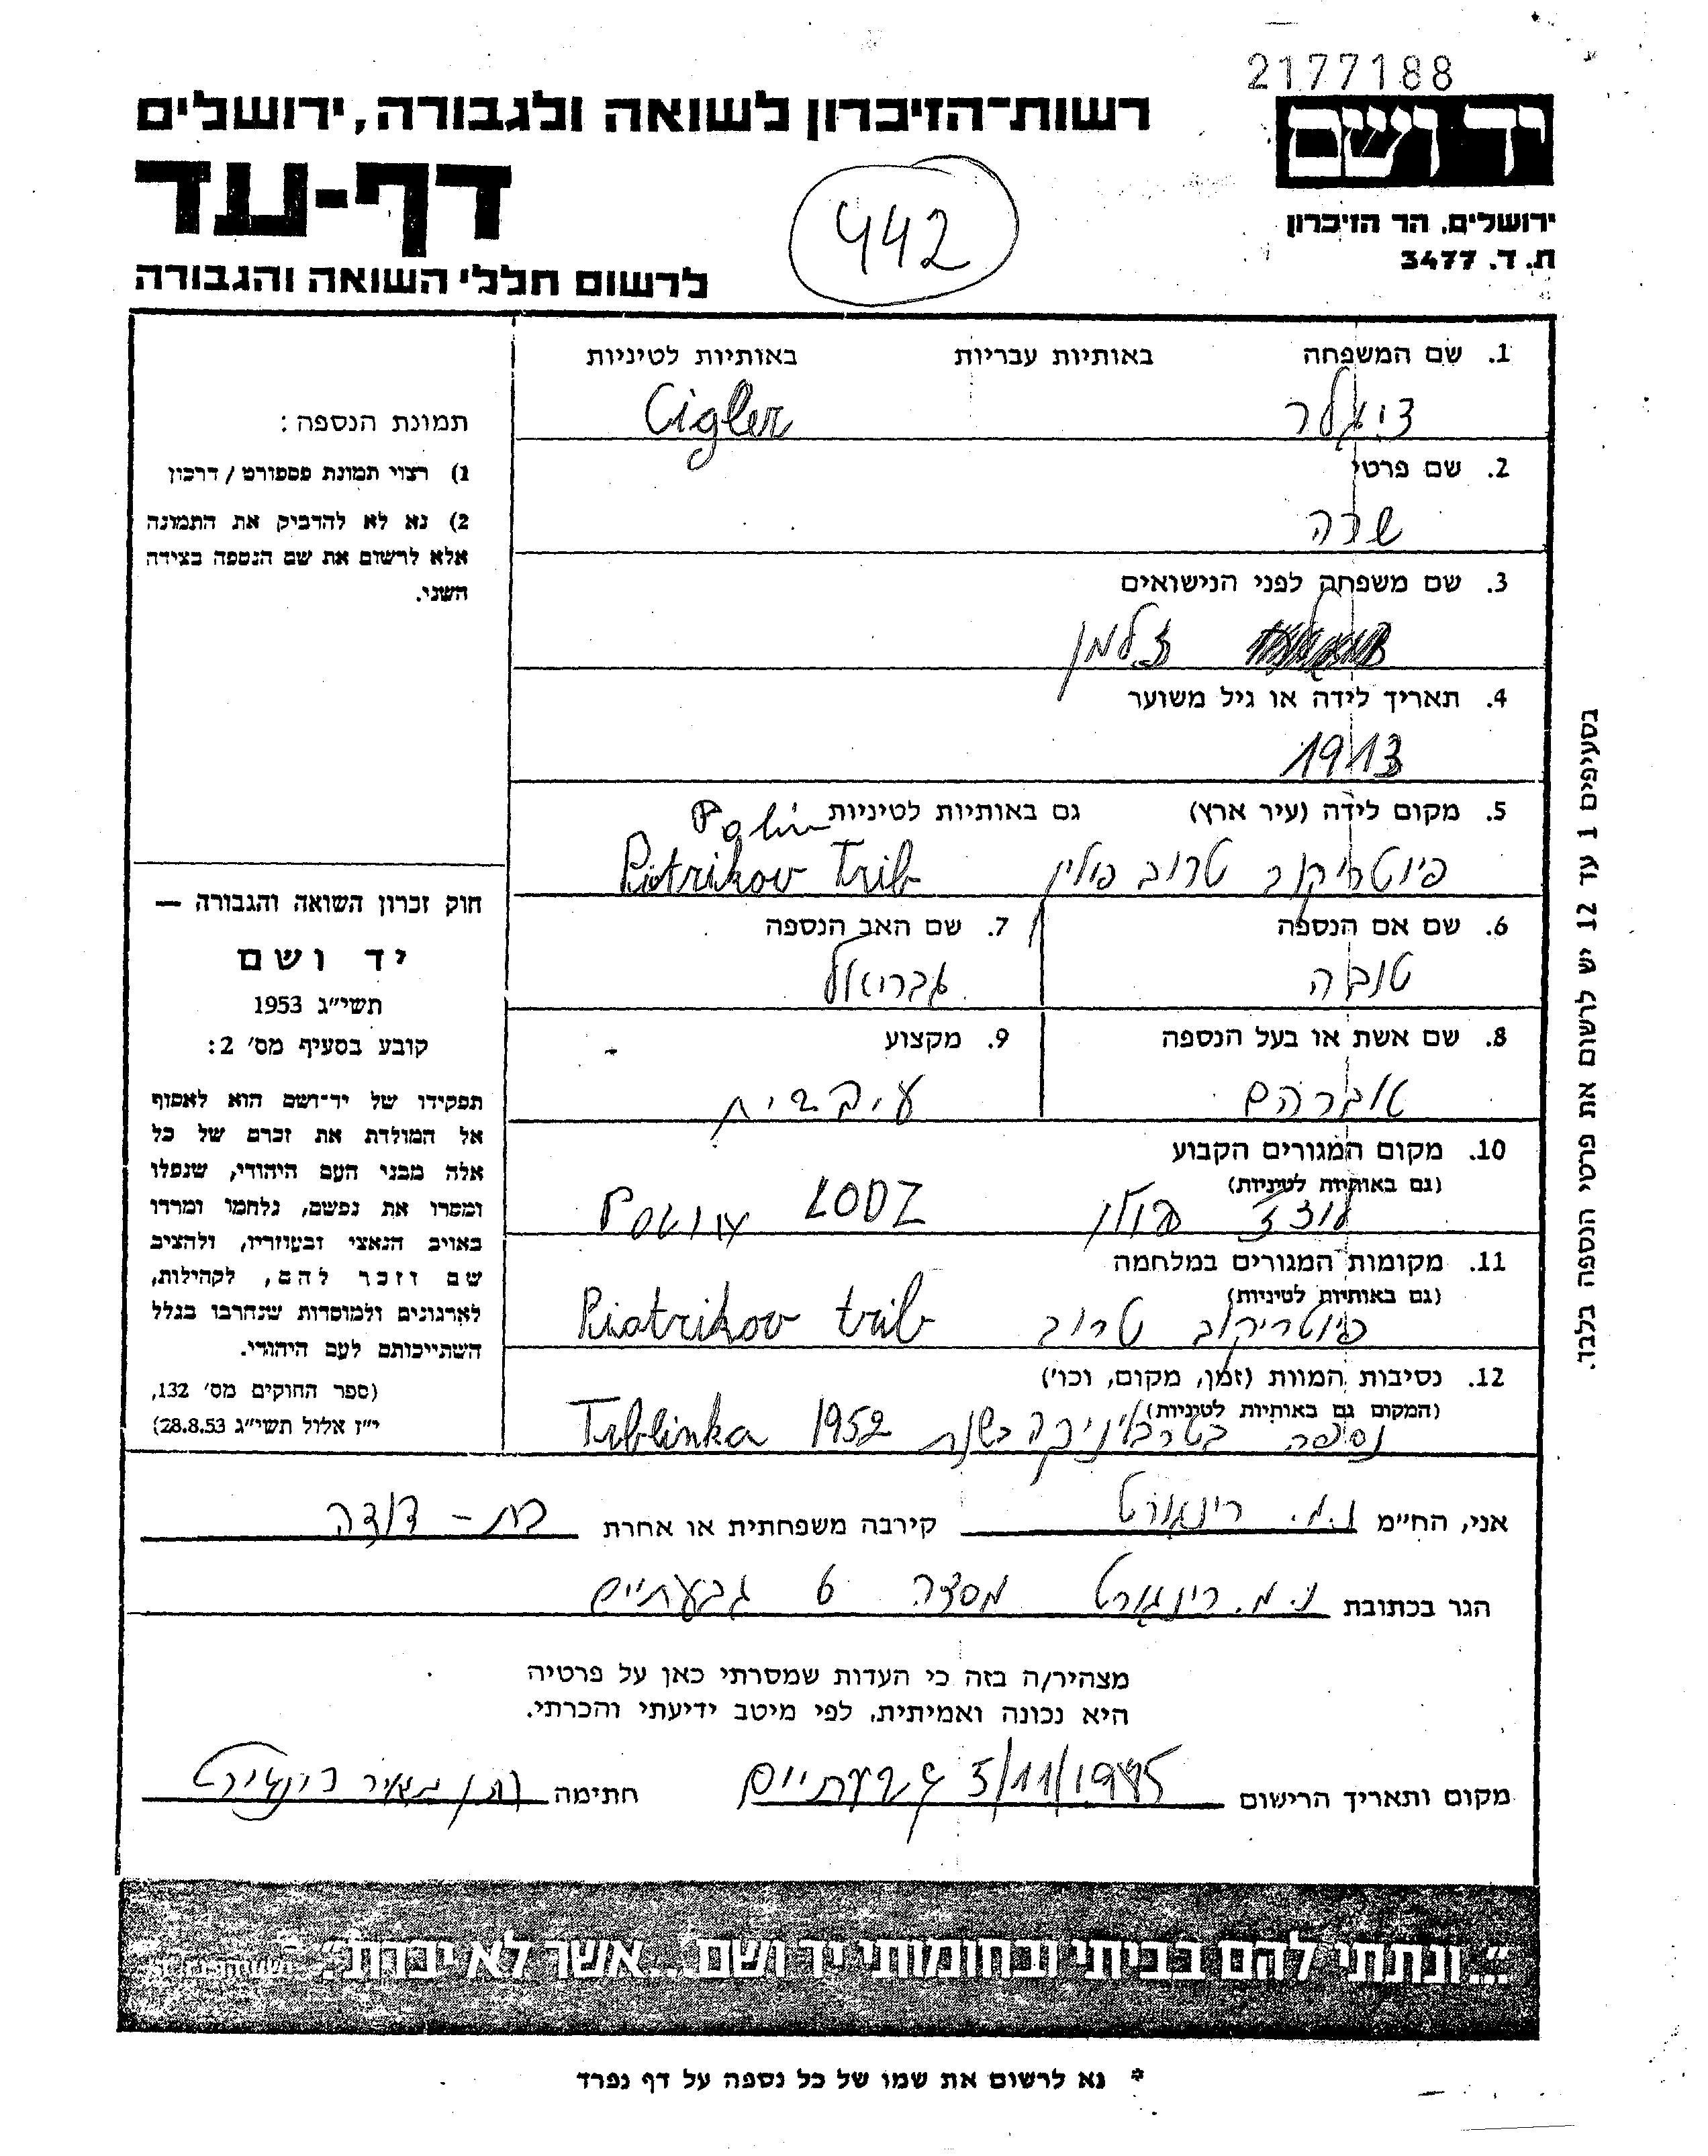 2177188
רשות־הזיכרון לשואה ולגבורה, ירושלים
יד ושם
דף-עד
442
ירושלים, הר הזיכרון
ת. ד. 3477
לרשום חללי השואה והגבורה
1. שם המשפחה באותיות עבריות באותיות לטיניות
ציגלר Cigler
2. שם פרטי
שרה
3. שם משפחה לפני הנישואים
זלמן
4. תאריך לידה או גיל משוער
1913
5. מקום לידה (עיר ארץ) גם באותיות לטיניות Polin
פיוטריקוב טריב פולין Piotrikov Trib
6. שם אם הנספה 7. שם האב הנספה
טובה גבריאל
8. שם אשת או בעל הנספה 9. מקצוע
אברהם
10. מקום המגורים הקבוע
(גם באותיות לטיניות)
לודז פולין LODZ
11. מקומות המגורים במלחמה
(גם באותיות לטיניות)
פיוטריקוב טריב Piotrikov trib
12. נסיבות המוות (זמן, מקום, וכו')
(המקום גם באותיות לטיניות)
נספה בטרבלינקה בשנת 1952 Trblinka
תמונת הנספה:
1) רצוי תמונת פספורט / דרכון
2) נא לא להדביק את התמונה
אלא לרשום את שם הנספה בצידה
השני.
חוק זכרון השואה והגבורה —
יד ושם
תשי״ג 1953
קובע בסעיף מס׳ 2:
תפקידו של יד־ושם הוא לאסוף
אל המולדת את זכרם של כל
אלה מבני העם היהודי, שנפלו
ומסרו את נפשם, נלחמו ומרדו
באויב הנאצי ובעוזריו, ולהציב
שם וזכר להם, לקהילות,
לארגונים ולמוסדות שנחרבו בגלל
השתייכותם לעם היהודי.
(ספר החוקים מס׳ 132,
י״ז אלול תשי״ג 28.8.53)
בסעיפים 1 עד 12 יש לרשום את פרטי הנספה בלבד.
אני, הח״מ נ.מ. רינגורט קירבה משפחתית או אחרת בת - דודה
הגר בכתובת נ. מ. רינגורט מסדה 6 גבעתיים
מצהיר/ה בזה כי העדות שמסרתי כאן על פרטיה
היא נכונה ואמיתית, לפי מיטב ידיעתי והכרתי.
מקום ותאריך הרישום גבעתיים חתימה נתן מאיר רינגורט
״...ונתתי להם בביתי ובחומותי יד ושם...אשר לא יכרת״
* נא לרשום את שמו של כל נספה על דף נפרד